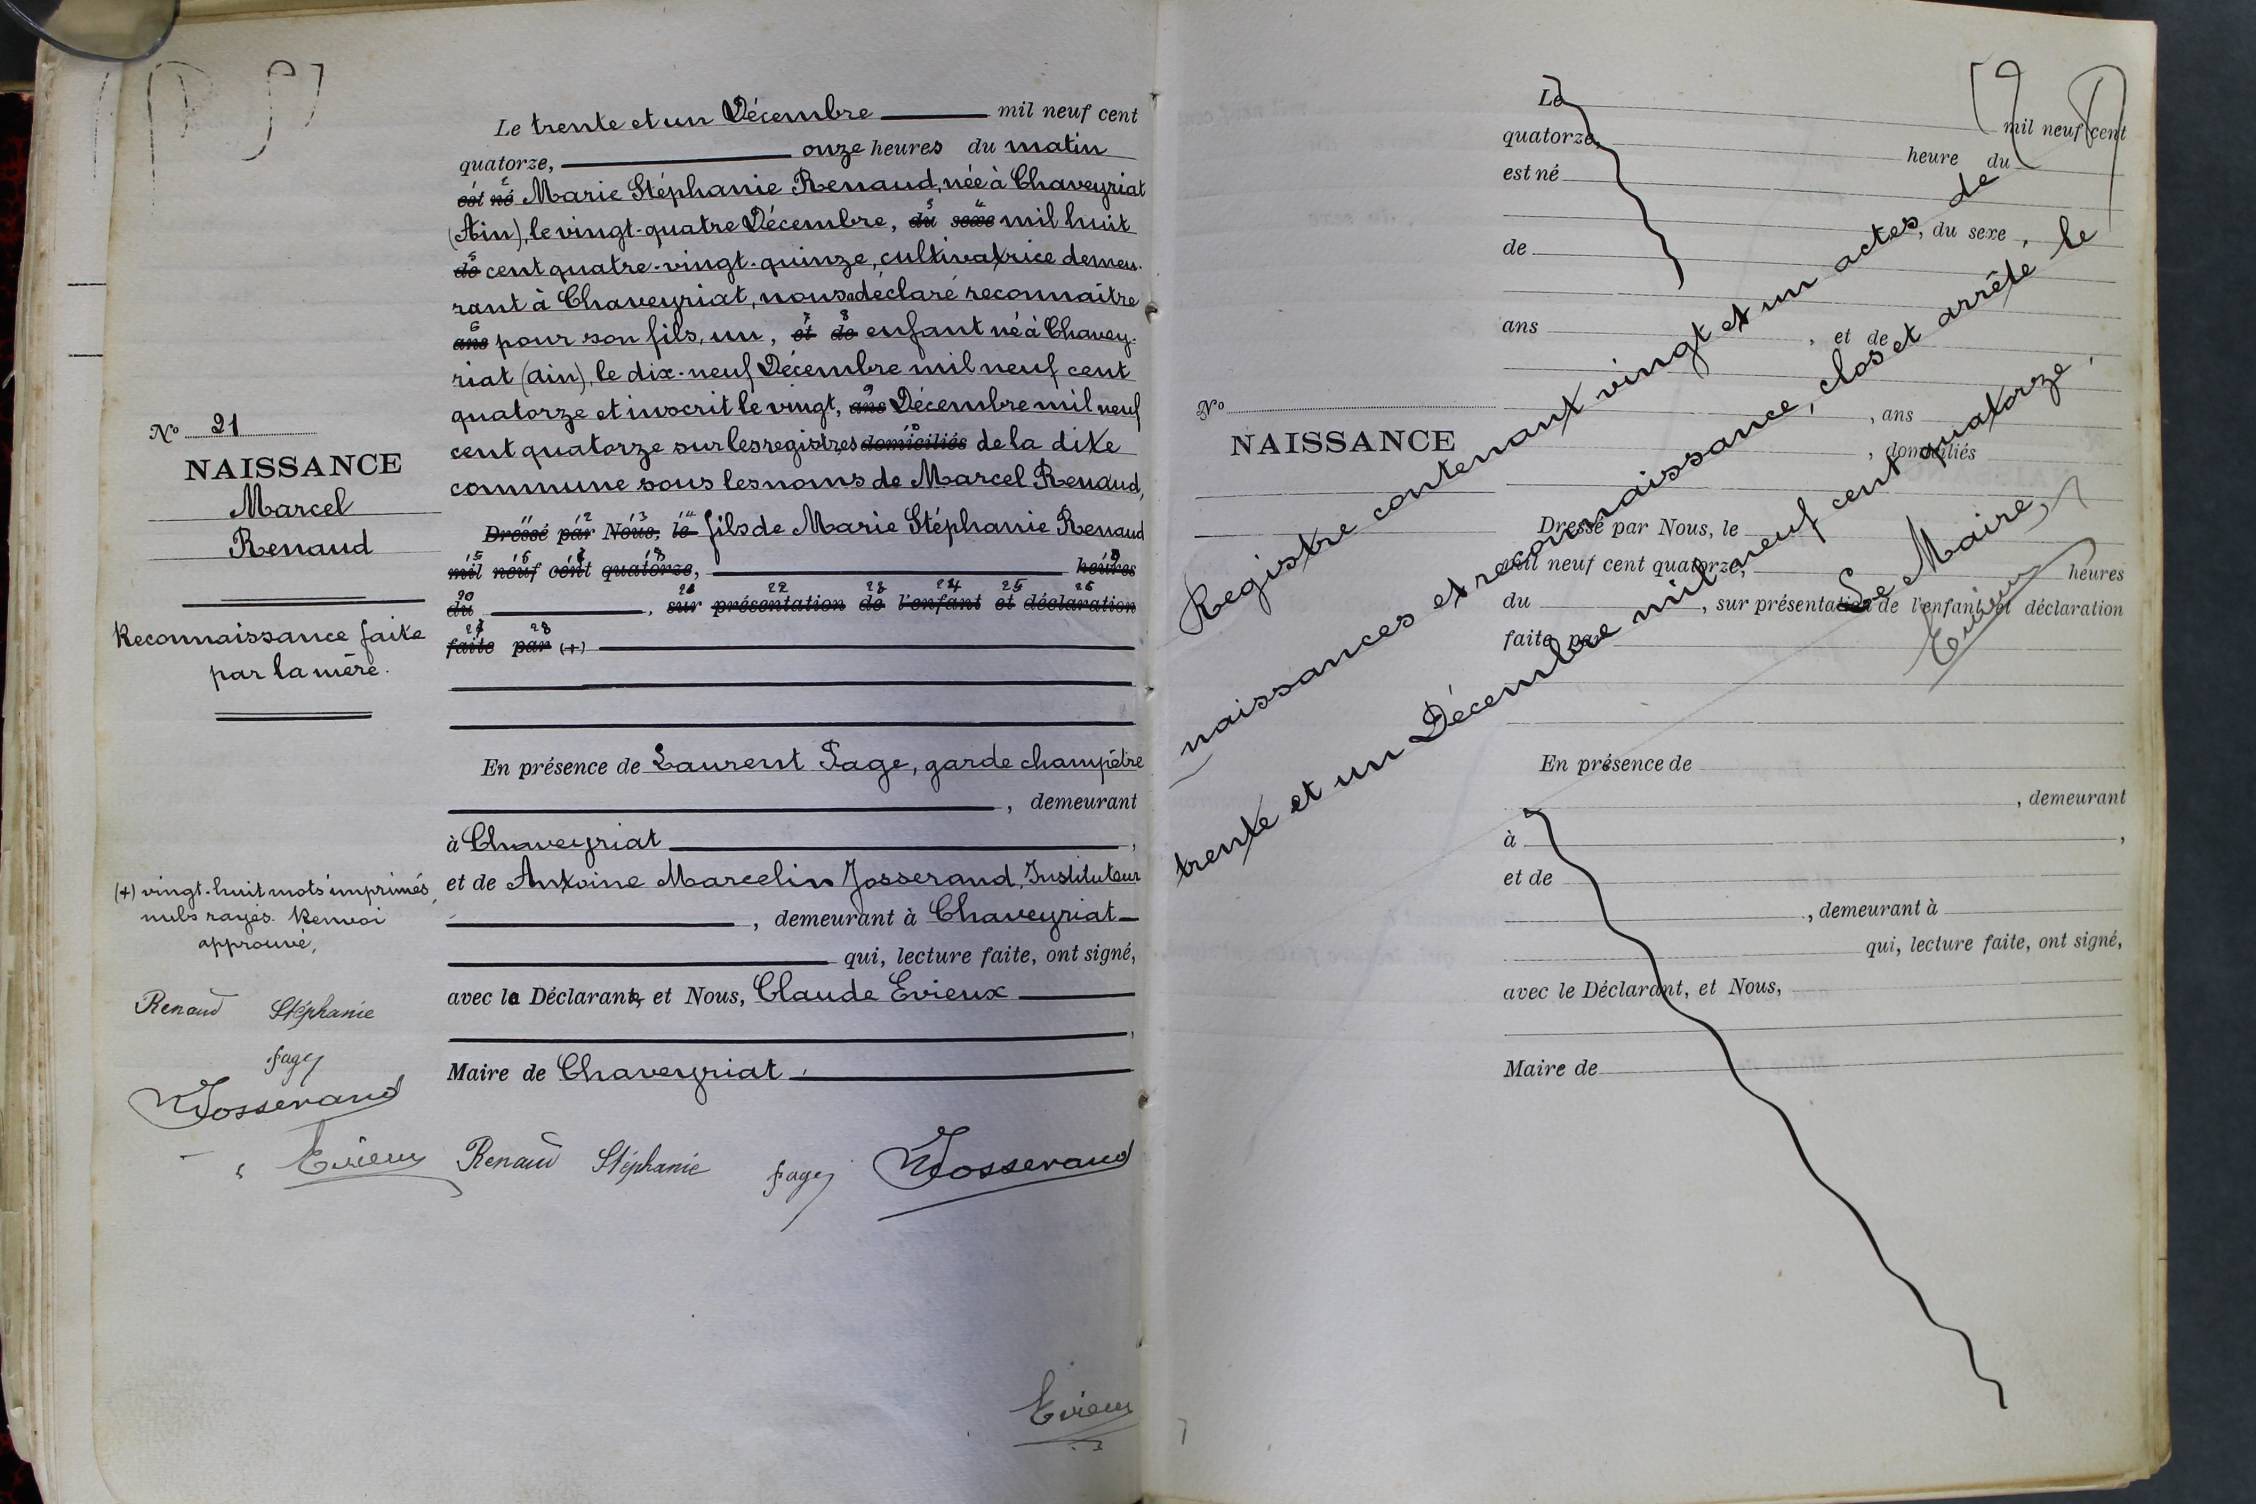 Le trente et un Décembre mil neuf cent
quatorze, onze heures du matin
est né Marie Stéphanie Renaud, née à Chaveyriat
(Ain), le vingt-quatre Décembre, du sexe mil huit
de cent quatre-vingt-quinze, cultivatrice demeu-
rant à Chaveyriat, nous a déclaré reconnaître
ans pour son fils, un, et de enfant né à Chavey-
riat (Ain), le dix-neuf Décembre mil neuf cent
quatorze et inscrit le vingt, ans Décembre mil neuf
cent quatorze sur les registres domiciliés de la dite
commune sous les noms de Marcel Renaud,
Dressé par Nous, le fils de Marie Stéphanie Renaud
mil neuf cent quatorze, heures
du , sur présentation de l'enfant et déclaration
faite par (+)
En présence de Laurent Page, garde champêtre
, demeurant
à Chaveyriat ,
et de Antoine Marcelin Josserand, Instituteur
, demeurant à Chaveyriat
qui, lecture faite, ont signé,
avec la Déclarante, et Nous, Claude Evieux
,
Maire de Chaveyriat.
Renaud Stéphanie Page Josserand
Evieux
No 21
NAISSANCE
Marcel
Renaud
Reconnaissance faite
par la mère.
(+) vingt-huit mots imprimés,
nuls rayés. Renvoi
approuvé,
Renaud Stéphanie
Page
Josserand
Evieux
No
NAISSANCE
Le mil neuf cent
quatorze, heure du
est né
, du sexe ,
de
ans , et de
, ans
, domiciliés
Dressé par Nous, le
mil neuf cent quatorze, heures
du , sur présentation de l'enfant et déclaration
faite par
En présence de
, demeurant
à ,
et de
, demeurant à
qui, lecture faite, ont signé,
avec le Déclarant, et Nous,
Maire de
Registre contenant vingt et un actes de
naissances et reconnaissance, clos et arrêté le
trente et un Décembre mil neuf cent quatorze.
Le Maire,
Evieux